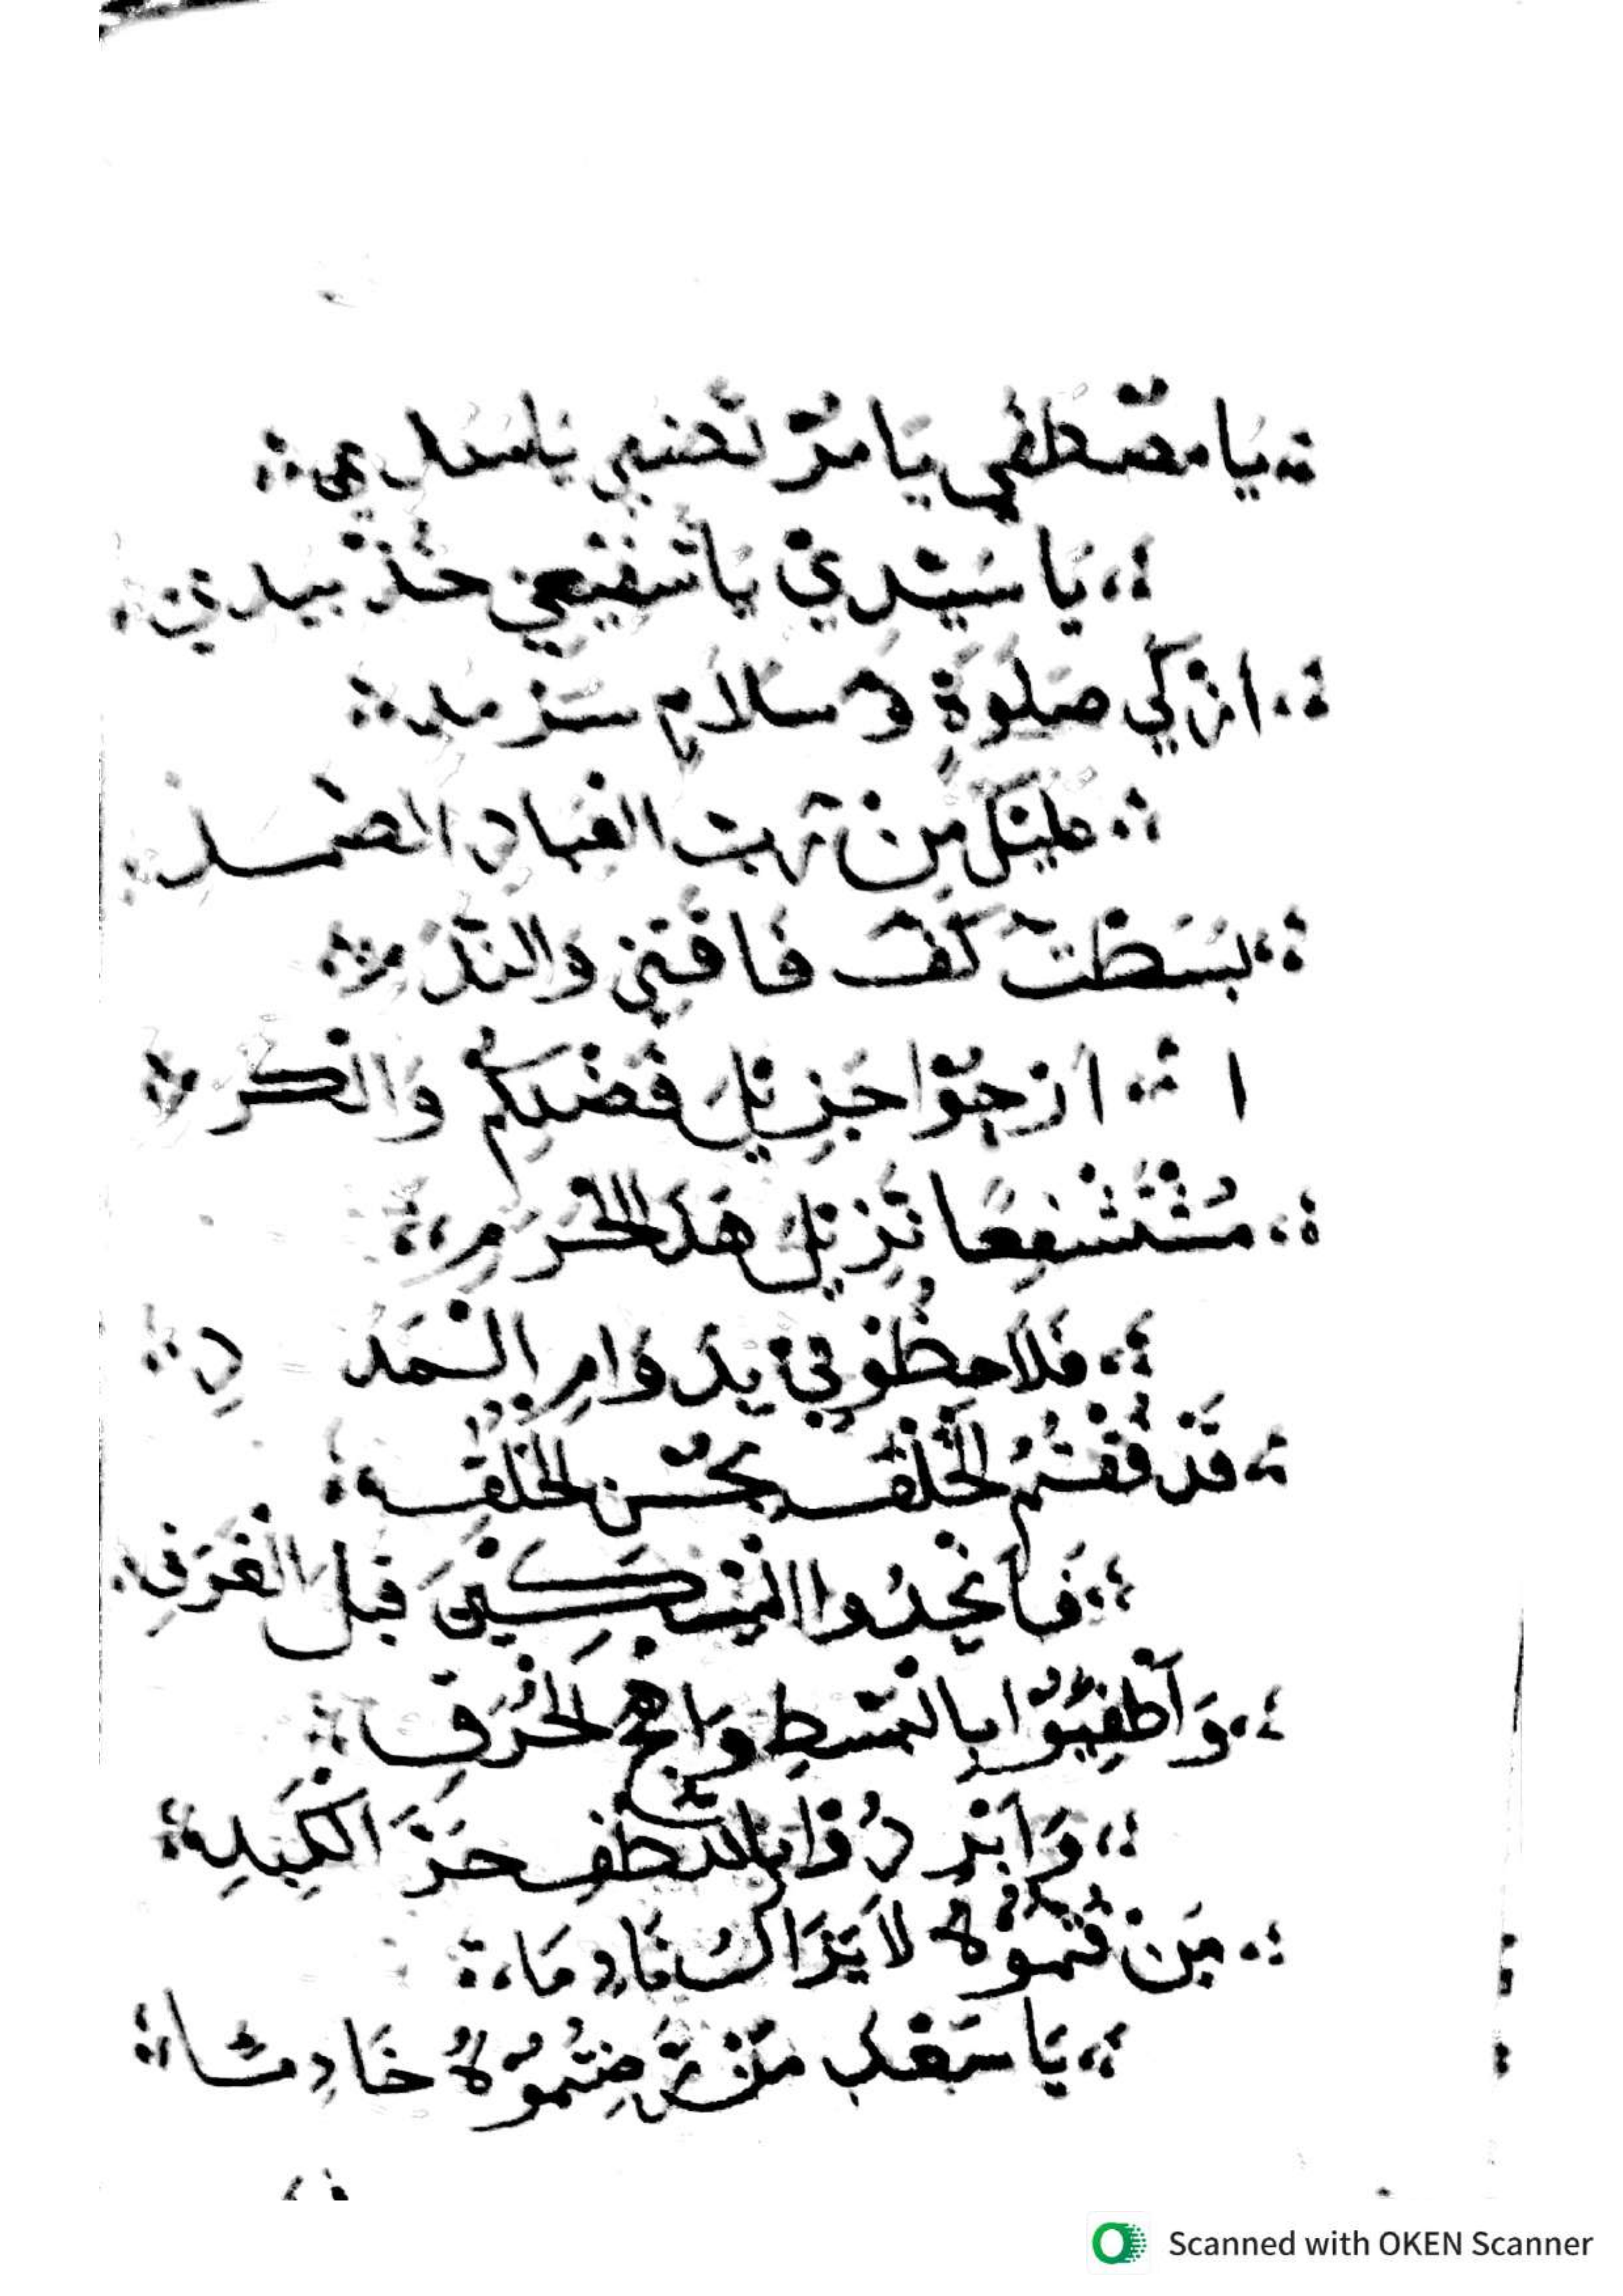 يَا مُصْطَفَى يَا مُرْتَضَى يَا سَنَدِي
يَا سَيِّدِي يَا شَفِيعِي خُذْ بِيَدِي
ازْكَي صَلَوةٍ وَسَلَامٍ سَرْمَد
عَلَيْكَ مِنْ رَبِّ الْعِبَادِ الصَّمَدِ
بَسَطْتُ كَفَّ فَاقَتِي وَالنَّدَمِ
ا ارْجُوْا جَزِيْلَ فَضْلِكُمْ وَالْكَرَمِ
مُسْتَشْفِعًا نَزِيْلَ هَذَ الْحَرَمِ
فَلَاحِظُوْنِي بِدَوَامِ الْمَدَدِ
قَدْ فُقْتُمُ الْخَلْقَ بِحُسْنِ الْخُلُقِ
فَانْجِدُوا الْمِسْكِيْنَ قَبْلَ الْغَرَقِ
وَاَطْفِئُوْا بِالْبَسْطِ وَاهِجَ الْحُرَقِ
وَابْرِدُوْا بِاللُّطْفِ حَرَّ الْكَبِدِ
مَنْ لَا يَزَالُ نَادِمَا
يَا سَعْدَ مَنْ رَضِيْتُمُوْهُ خَادِمًا
Scanned with OKEN Scanner